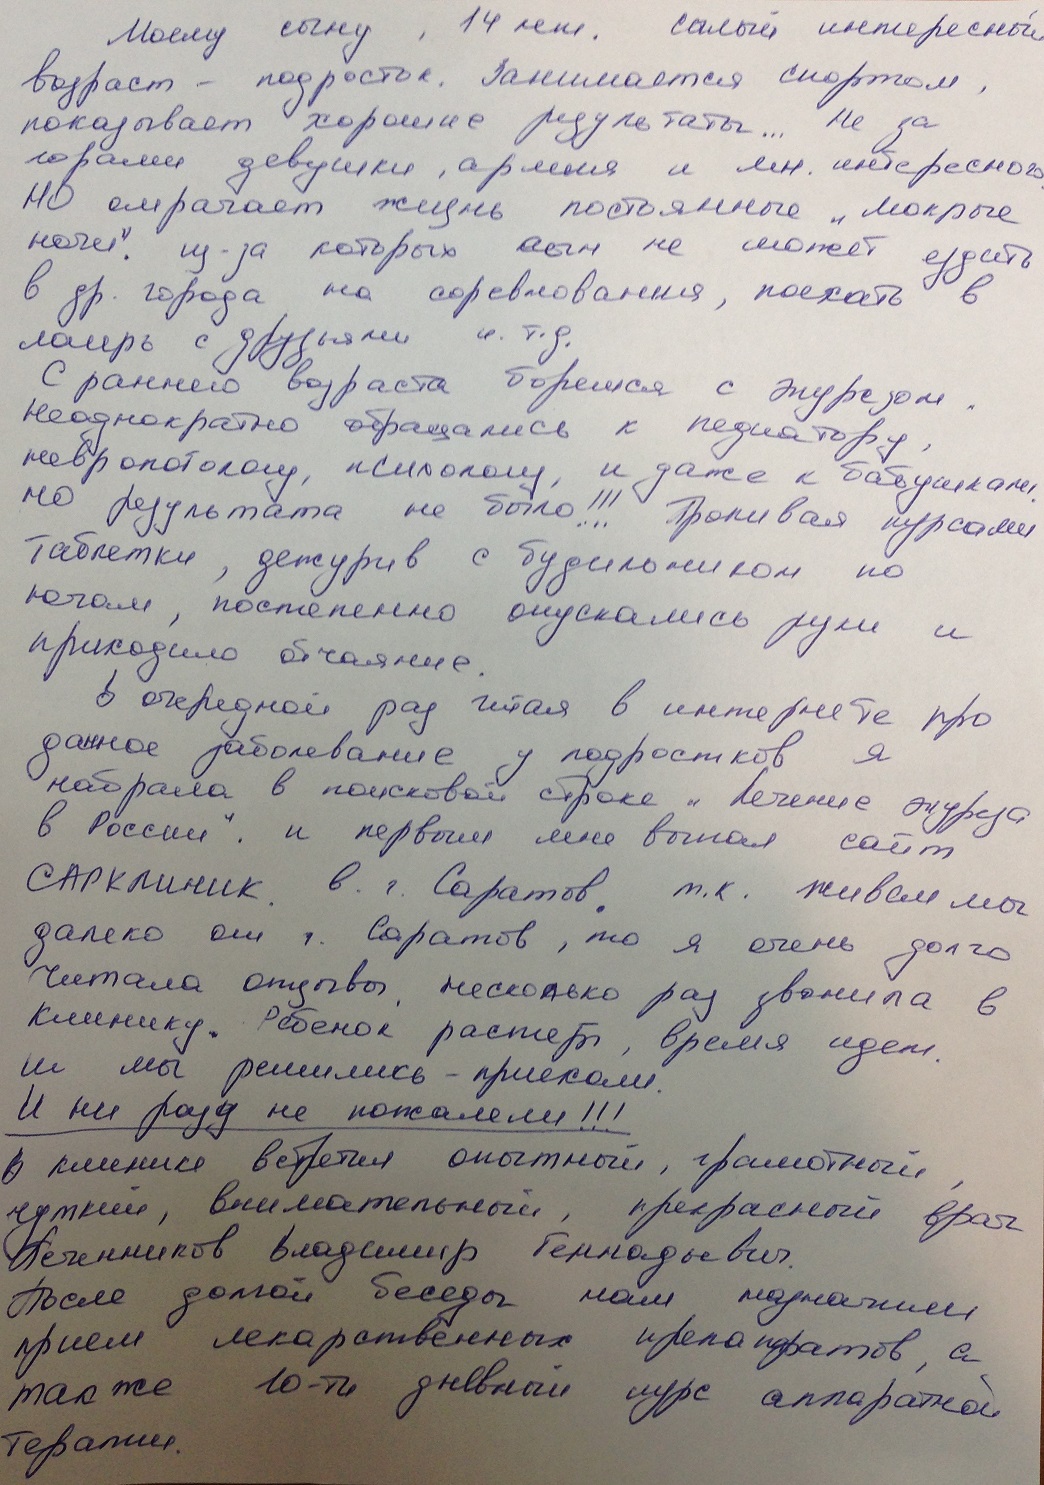 Моему сыну , 14 лет. самый интересный
возраст – подросток. Занимается спортом,
показывает хорошие результаты... Не за
горами девушки, армия и мн. интересного.
НО омрачает жизнь постоянные „мокрые
ночи". из-за которых сын не может ездить
в др. города на соревнования, поехать в
лагерь с друзьями и.т.д.
С раннего возраста боремся с энурезом.
неоднократно обращались к педиатору,
невропотологу, психологу, и даже к бабушкам.
но результата не было!!! Пропивая курсами
таблетки, дежурив с будильником по
ночам, постепенно опускались руки и
приходило отчаяние.
В очередной раз читая в интернете про
данное заболевание у подростков я
набрала в поисковой строке „Лечение энуреза
в России". и первым мне выпал сайт
САРКЛИНИК. в. г. Саратов. т.к. живем мы
далеко от г. Саратов, то я очень долго
читала отзывы, несколько раз звонила в
клинику. Ребенок растет, время идет.
и мы решились – приехали.
И ни разу не пожалели!!!
В клинике встретил опытный, грамотный,
чуткий, внимательный, прекрасный врач
Печенников Владимир Геннадьевич.
После долгой беседы нам назначили
прием лекарственных препаратов, а
также 10-ти дневный курс аппаратной
терапии.